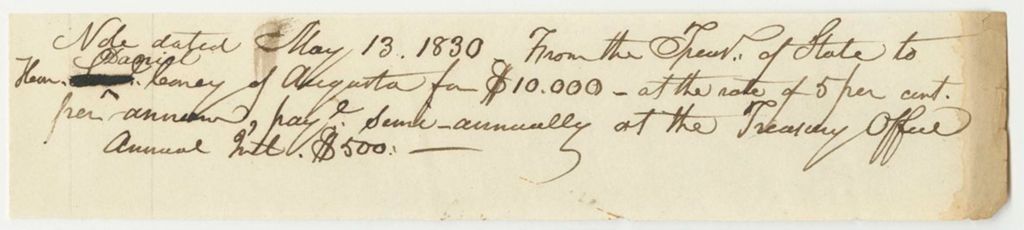 Note dated May 13. 1830 From the Treasr. of State to
Hon. Daniel Coney of Augusta for $10.000 - at the rate of 5 per cent.
per annum, paye. semi-annually at the Treasury Office
Annual Intt. $500. —